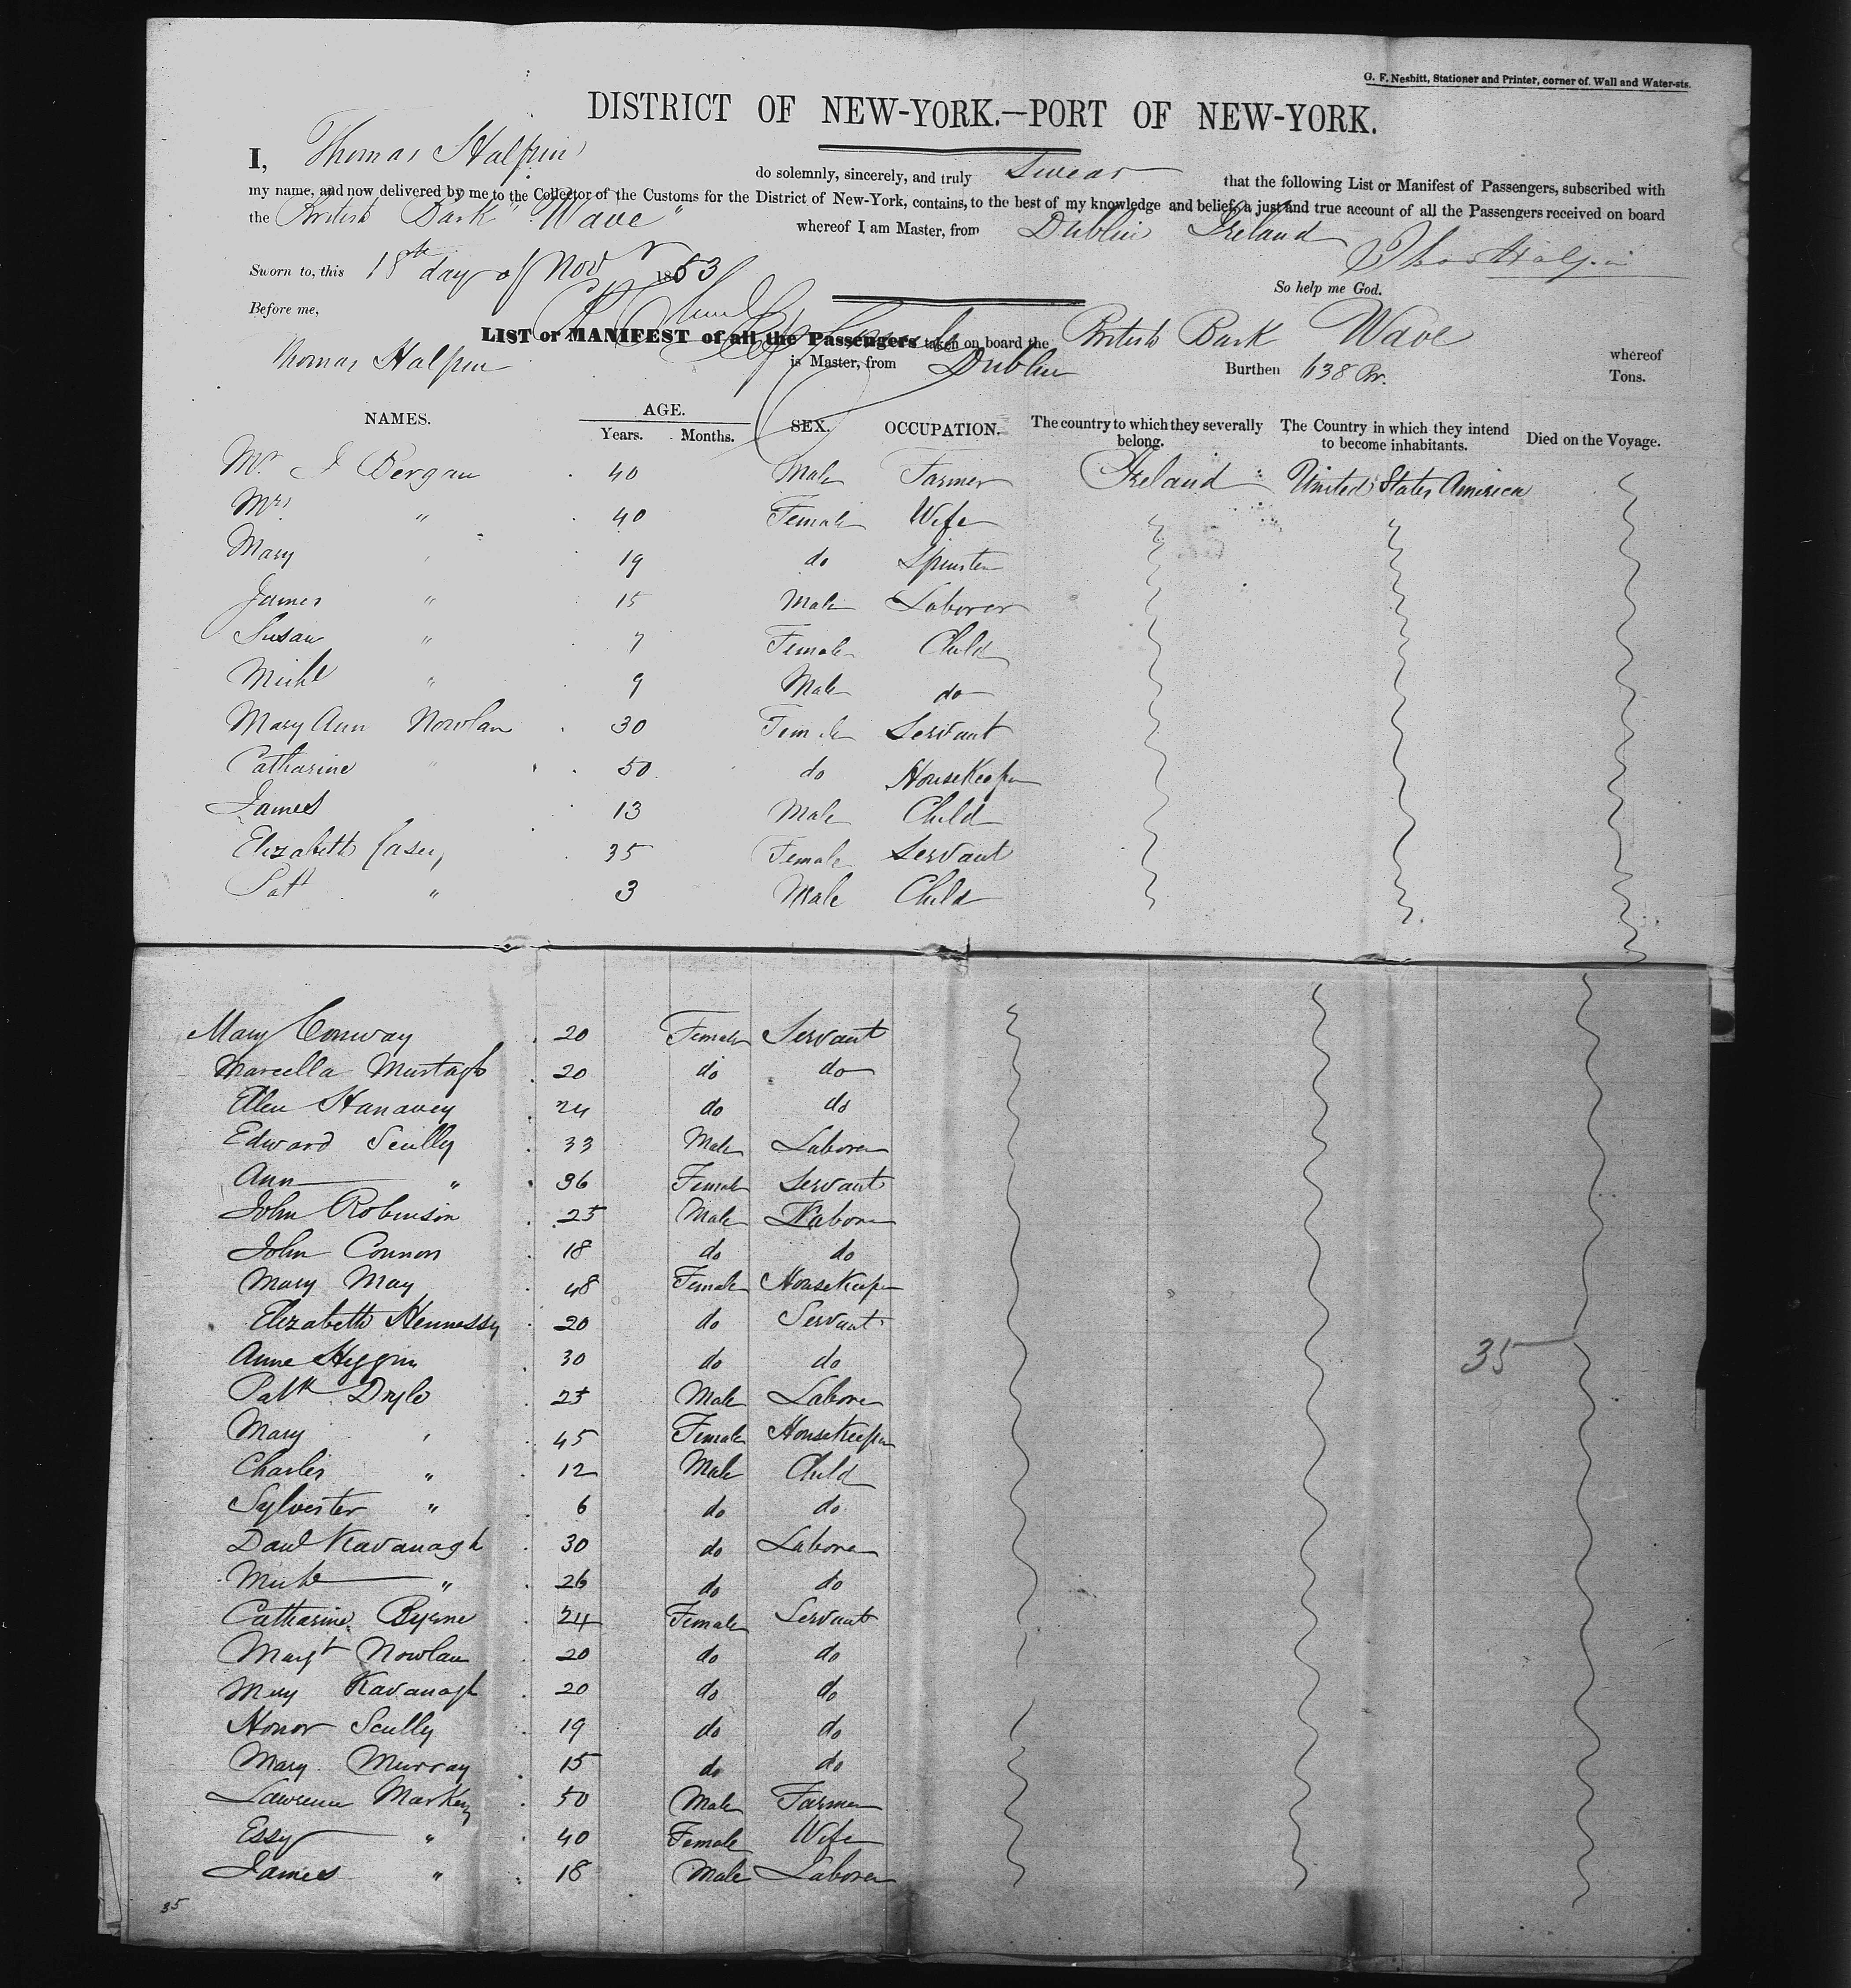 G. F. Nesbitt, Stationer and Printer, corner of Wall and Water-sts.
DISTRICT OF NEW-YORK.—PORT OF NEW-YORK.
I, Thomas Halpin do solemnly, sincerely, and truly Swear that the following List or Manifest of Passengers, subscribed with
my name, and now delivered by me to the Collector of the Customs for the District of New-York, contains, to the best of my knowledge and belief, a just and true account of all the Passengers received on board
the British Bark "Wave" whereof I am Master, from Dublin Ireland
Thos Halpin
Sworn to, this 18th day of Novr 1853
So help me God.
Before me,
LIST or MANIFEST of all the Passengers taken on board the British Bark Wave whereof
Thomas Halpin is Master, from Dublin Burthen 638 Tons.
NAMES. AGE. Years. Months. SEX. OCCUPATION. The country to which they severally belong. The Country in which they intend to become inhabitants. Died on the Voyage.
Mr J Bergan 40 Male Farmer Ireland United States America
Mrs " 40 Female Wife
Mary 19 do Spinster
James " 15 Male Laborer
Susan " 7 Female Child
Michl " 9 Male do
Mary Ann Nowlan 30 Female Servant
Catharine " 50 do HouseKeeper
James 13 Male Child
Elizabeth Casey 35 Female Servant
Patt " 3 Male Child
Mary Conway 20 Female Servant
Marcella Murtagh 20 do do
Ellen Hanavey 24 do do
Edward Scully 33 Male Laborer
Ann " 36 Female Servant
John Robinson 25 Male Laborer
John Connon 18 do do
Mary May 48 Female HouseKeeper
Elizabeth Hennessy 20 do Servant
Anne Higgin 30 do do
35
Patk 25 Male Laborer
Mary " 45 Female HouseKeeper
Charles " 12 Male Child
Sylvester " 6 do do
Danl Kavanagh 30 do Laborer
Michl " 26 do do
Catharine Byrne 24 Female Servant
Margt Nowlan 20 do do
Mary Kavanagh 20 do do
Honor Scully 19 do do
Mary Murray 15 do do
Lawrence Markey 50 Male Farmer
Essy " 40 Female Wife
James " 18 Male Laborer
35